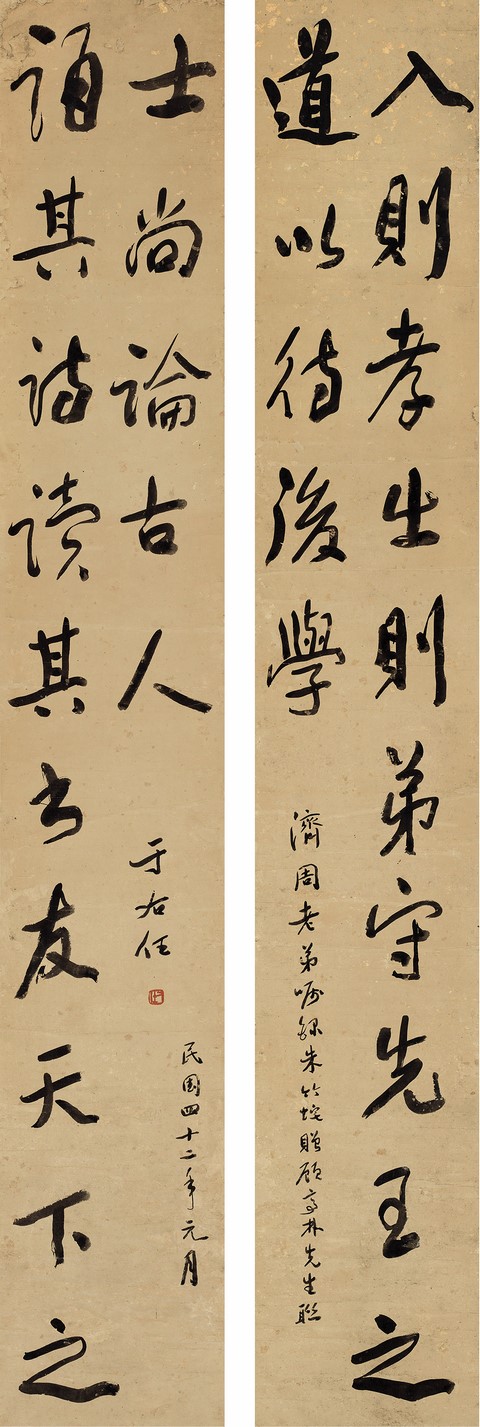 入則孝出則弟守先王之
道以待後學
濟周老弟囑錄朱竹垞贈顧亭林先生聯
誦其詩讀其書友天下之
士尚論古人
于右任
民國四十二年元月